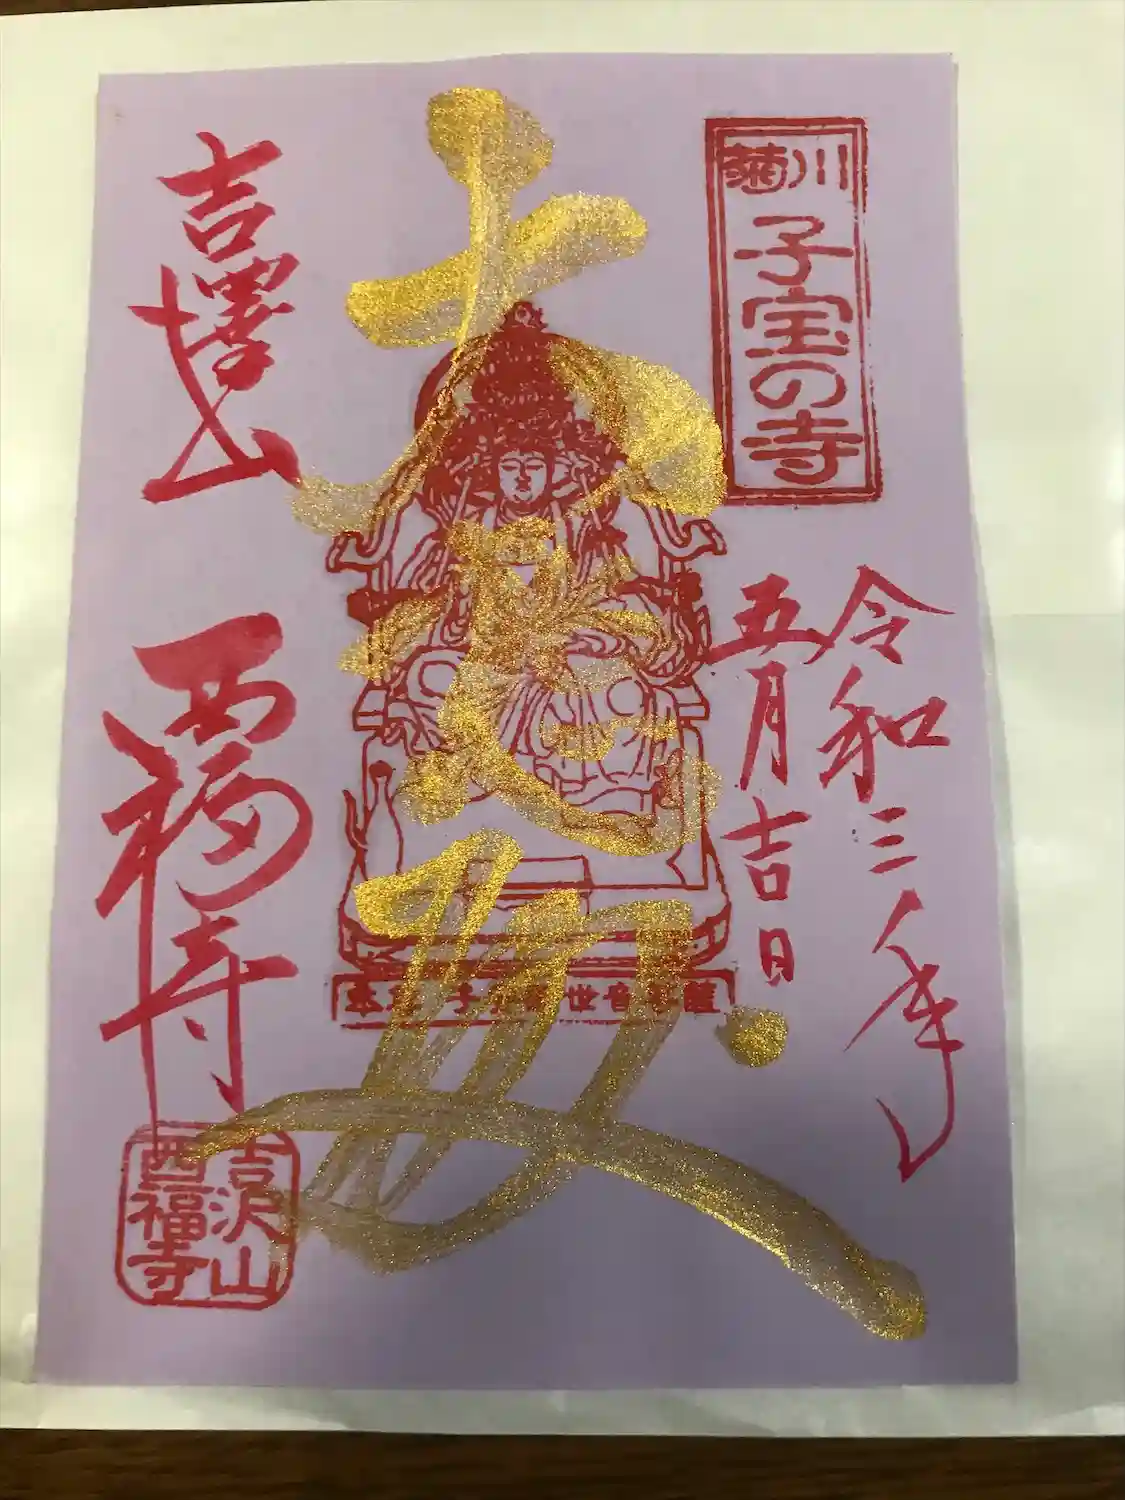 菊川
子宝の寺
令和三年
五月吉日
大悲
本尊 子 観世音菩薩
吉澤山 西福寺
吉沢山
西福寺